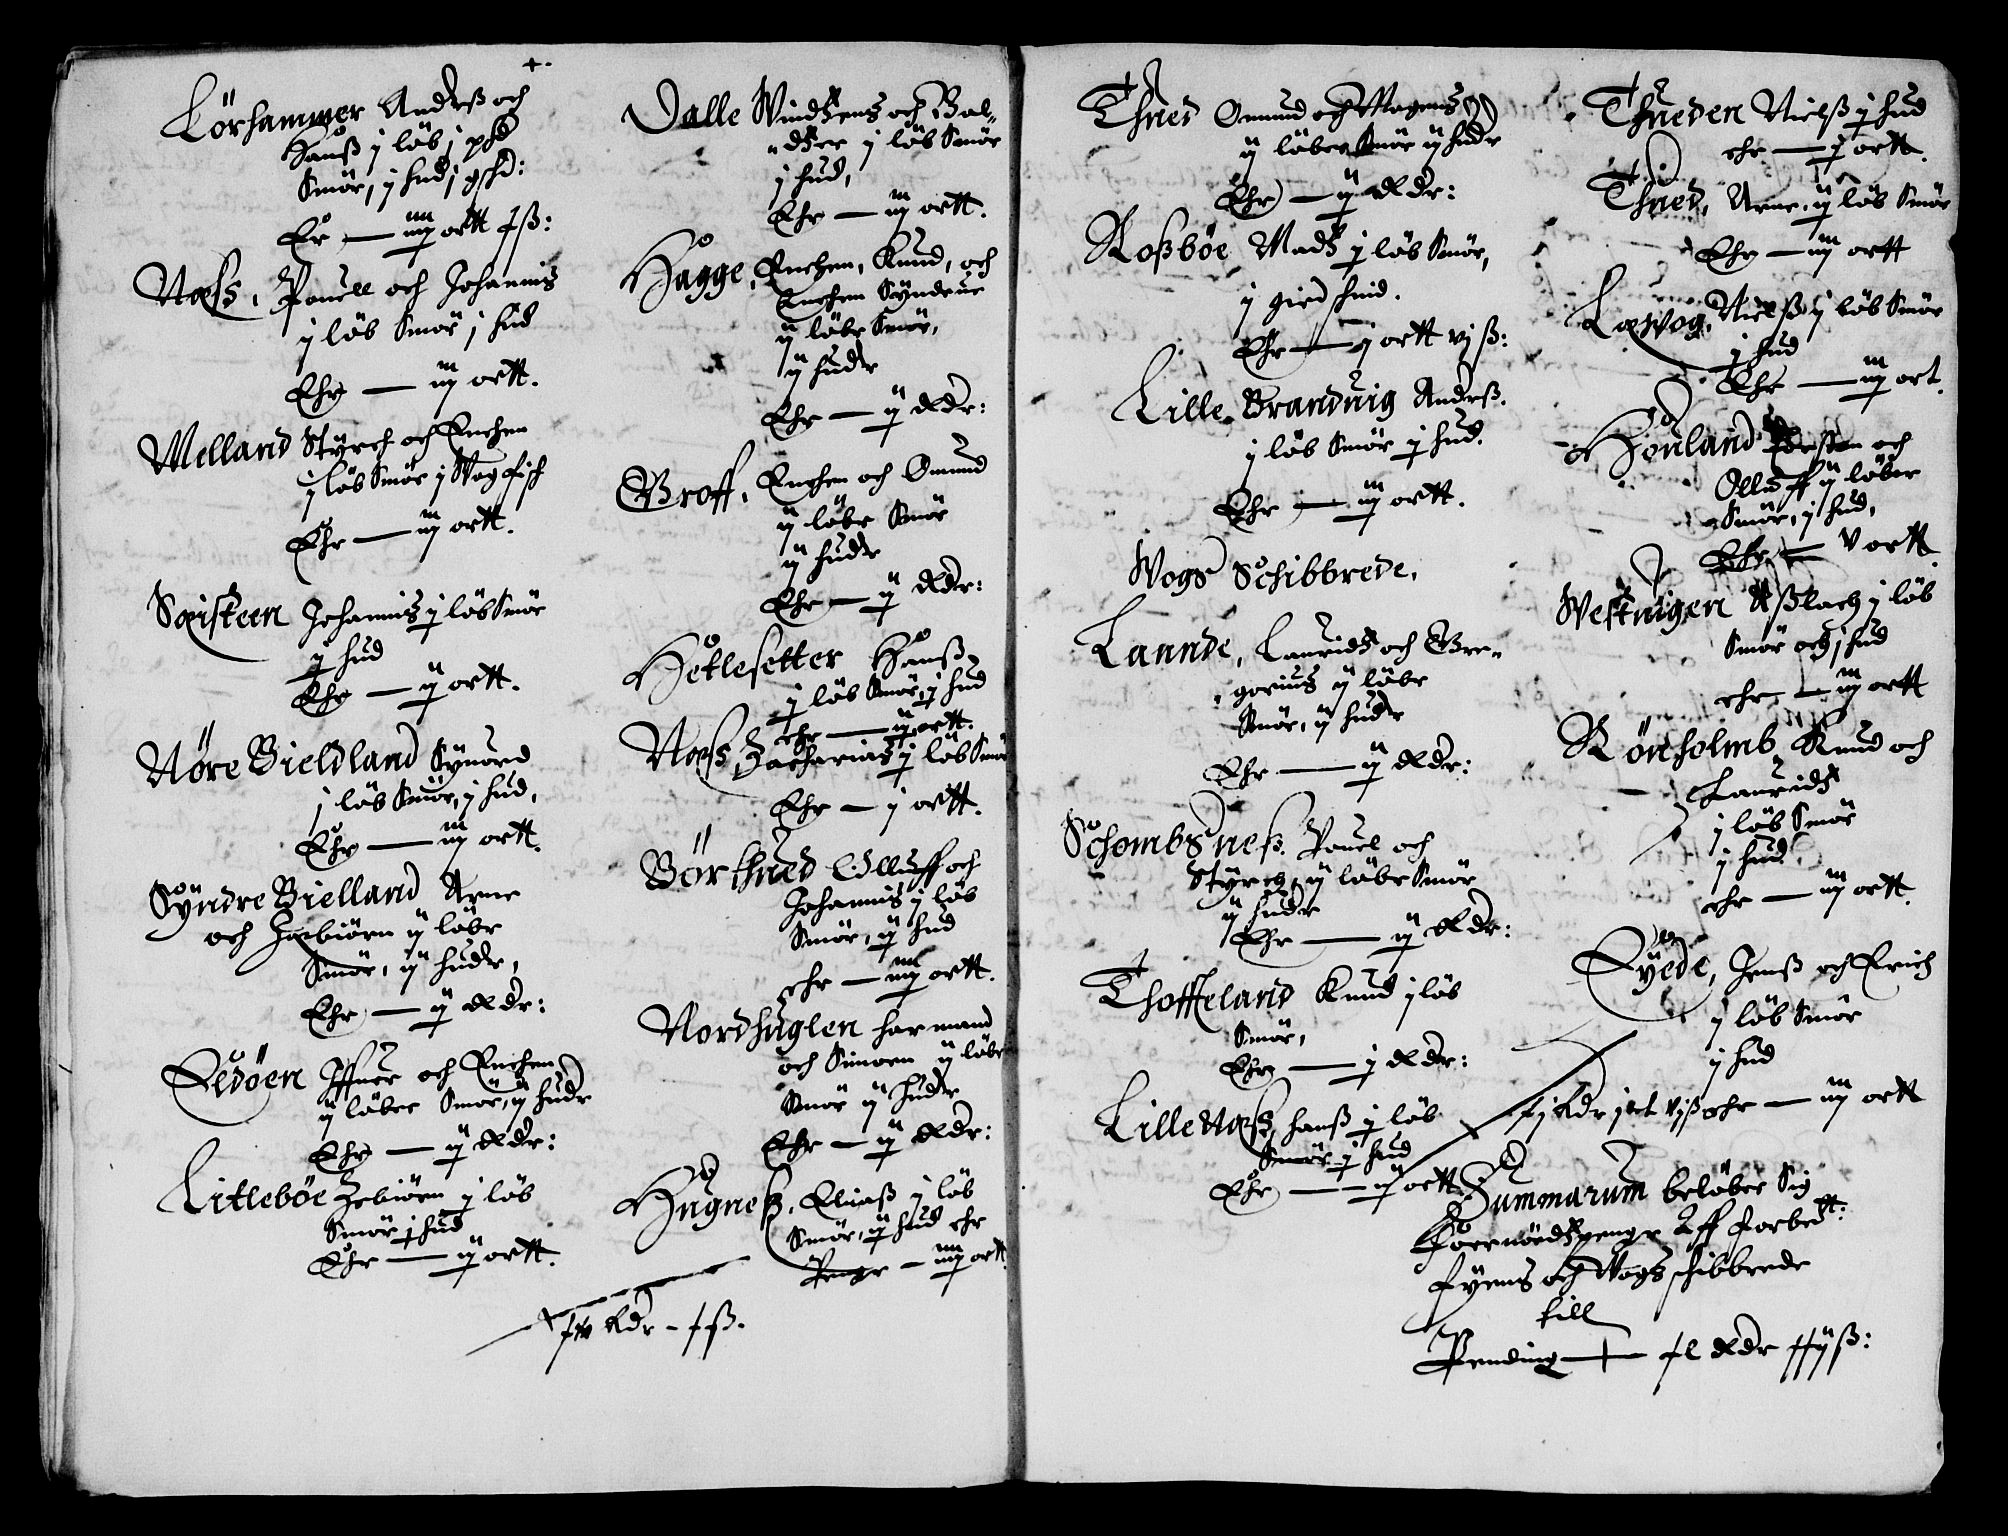 Lörhammer Andrß och
Hanß j löb j phd
Smör, j hud j gshd:
Er — iiij ortt jß:
Næß, Pouell och Johannis
j löb Smör j hud
Ehr — iij ortt.
Melland Styrch och Enchen
j löb Smör j Wog fisch
Ehr — iij ortt.
Sæisteen Johannis j löb Smör
j hud
Ehr — ij ortt.
Nöre Bieldland Syuord
j löb Smör, j hud,
Ehr — iij ortt.
Syndre Bielland Arne
och Torbiörn ij löbe
Smör, ij huder,
Ehr — ij Rdr:
Eldöen Iffuer och Enchen
ij löber Smör, ij hudr
Ehr — ij Rdr:
Litleböe Torbiörn j löb
Smör j hud
Ehr — ij ortt.
Dalle Windtzens och Bal„
„dtzer j löb Smör
j hud,
Ehr — iij ortt.
Hagge, Enchen, Knud, och
Enchen Syndeue
ij löbe Smör,
ij hudr
Ehr — ij Rdr:
Groff, Enchen och Omund
ij löbe Smör
ij hudr
Ehr — ij Rdr:
Hetlesetter Hanß
j löb Smör, j hud
ehr — ij ortt.
Næß, Zacharias j löb Smör
Ehr — j ortt.
Börthued Olluff och
Johannis j löb
Smör, ij hud
ehr — iiij ortt.
Nordhuglen Harmand
och Simoen ij löbe
Smör ij hudr
Ehr — ij Rdr:
Hugneß, Eliaß j löb
Smör, ij hud ehr
Penge — iiij ortt
Rdr – jß.
Thued Omund och Mogens
ij löber Smör ij hudr
Ehr — ij Rdr:
Roßböe Madtz j löb Smör,
j gied schid.
Ehr — j ortt vjß:
Lille Branduig Andrß.
j löb Smör j hud.
Ehr — iij ortt.
Wogs Schibbrede,
Lannde, Lauridtz och Gre„
„gorius ij löbe
Smör, ij hudr
Ehr — ij Rdr:
Schombsneß. Pouel och
Styrch, ij löbe Smör
ij hudr
Ehr — ij Rdr:
Thoffteland Knud j löb
Smör,
Ehr — j Rdr:
Lille Næß, hanß j löb
Smör j hud
Ehr — ij ortt
Thueden Nielß j hud
ehr — j ortt.
Thued, Arne, ij löb Smör
Ehr — iij ortt
Læwog, Nielß j löb Smör
j hud
Ehr — iij ort.
Höuland Torsten och
Olluff ij löber
Smör, j hud,
Ehr — V ortt
Westuigen Aßlach j löb
Smör och j hud
ehr — iij ortt
Rönholmb Knud och
Lauridtz
j löb Smör
j hud
ehr — iij ortt.
Eyede, Jenß och Erich
j löb Smör
j hud
Rdr j ort vjß ehr — iij ortt
Summarum belöber Sig
Foernödtzpenge Aff forbedt:
Fyens och Wogs schibbrede
till
Pending — jl Rdr jjijß: